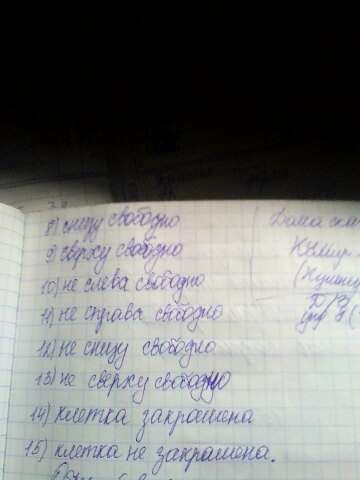 8) снизу свободно
9) сверху свободно
10) не слева свободно
11) не справа свободно
12) не снизу свободно
13) не сверху свободно
14) клетка закрашена
15) клетка не закрашена.
Дома